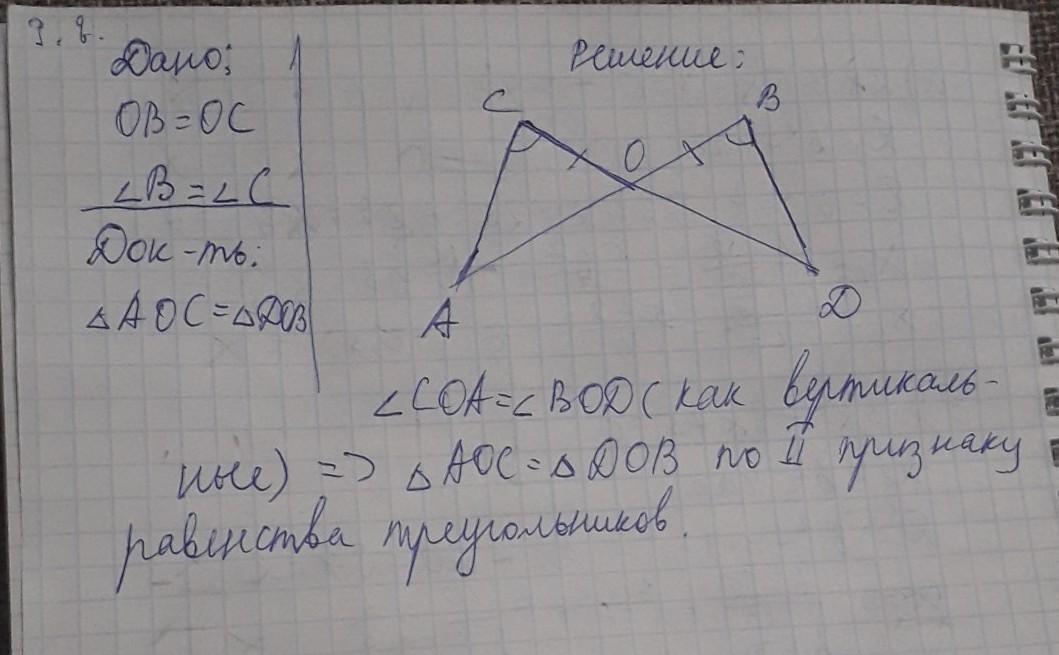 Дано:
OB=OC
∠B=∠C
Док-ть:
△AOC=△DOB
Решение:
C
B
O
A
D
∠COA=∠BOD (как вертикаль-
ные) => △AOC=△DOB по II признаку
равенства треугольников.